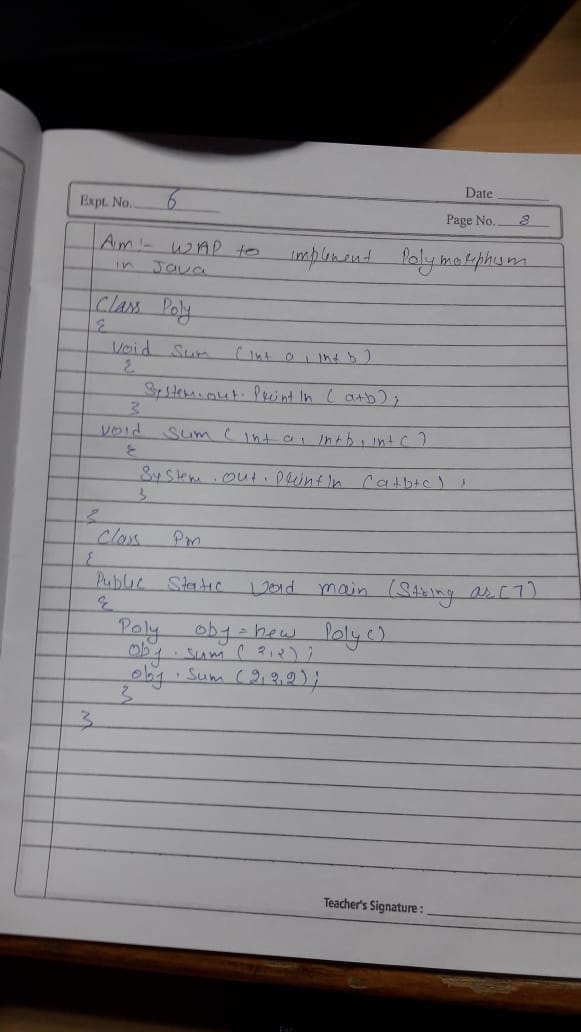 Date
Expt. No. 6
Page No. 8
Aim:- WAP to implement Polymorphism
in Java
Class Poly
{
void Sum (int a, int b)
{
System.out.Println (a+b);
}
void sum (int a, int b, int c)
{
System.out.Println (a+b+c);
}
}
Class Pm
{
Public Static Void main (String as[])
{
Poly obj = new Poly()
obj.sum (2,2);
obj.sum (2,2,2);
}
}
Teacher's Signature :